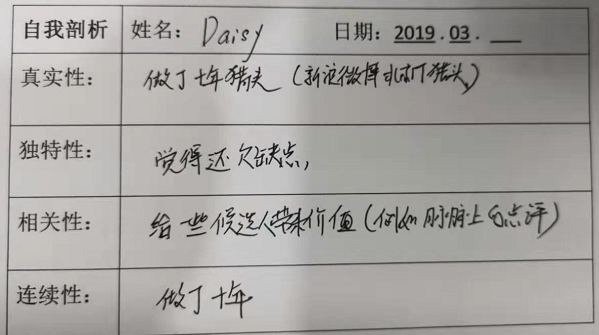 自我剖析 姓名: Daisy 日期: 2019.03.__
真实性: 做了十年猎头(新浪微博 猎头)
独特性: 觉得还欠缺点,
相关性: 给一些候选人带来价值(例如脉脉上的点评)
连续性: 做了十年